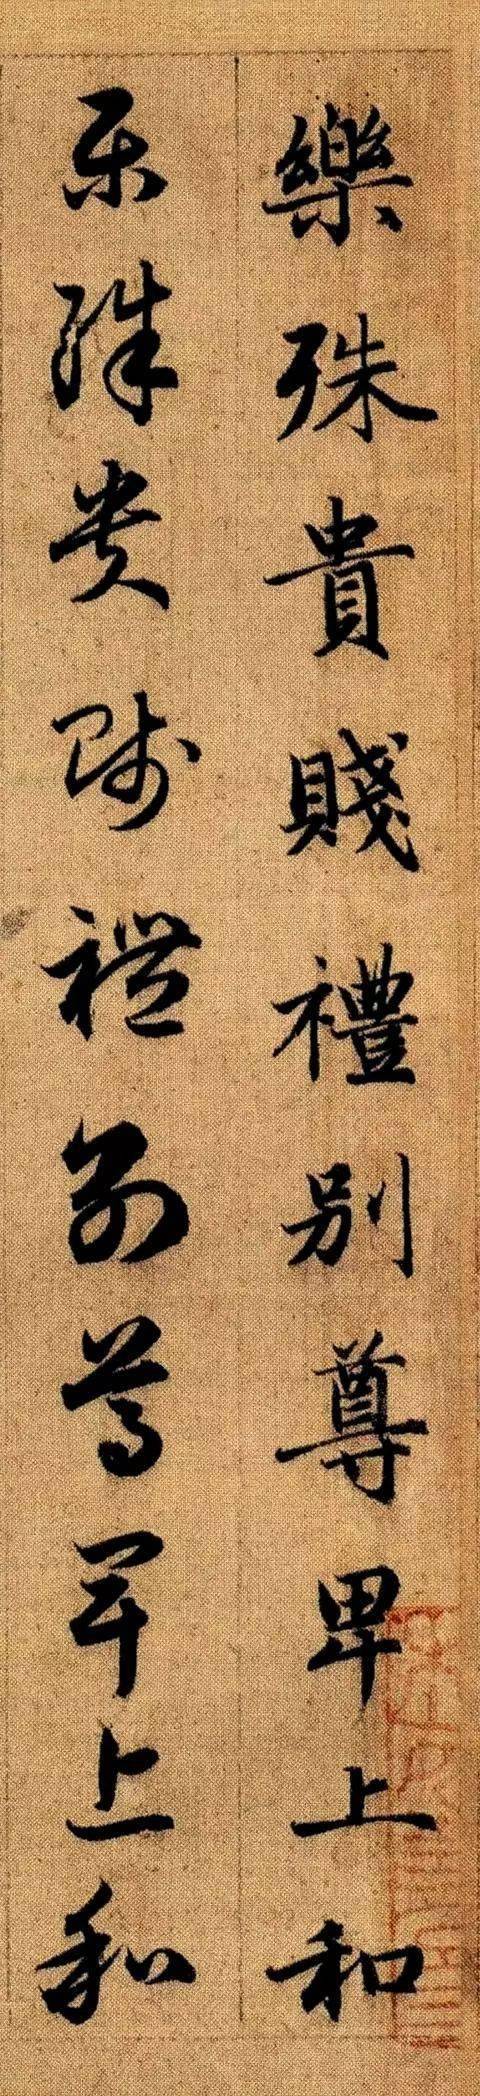 樂殊貴賤禮別尊卑上和
乐殊贵贱禮别尊卑上和